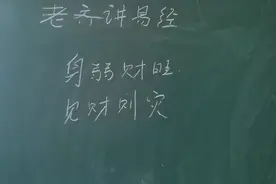 老齐讲易经
身弱财旺
见财则灾